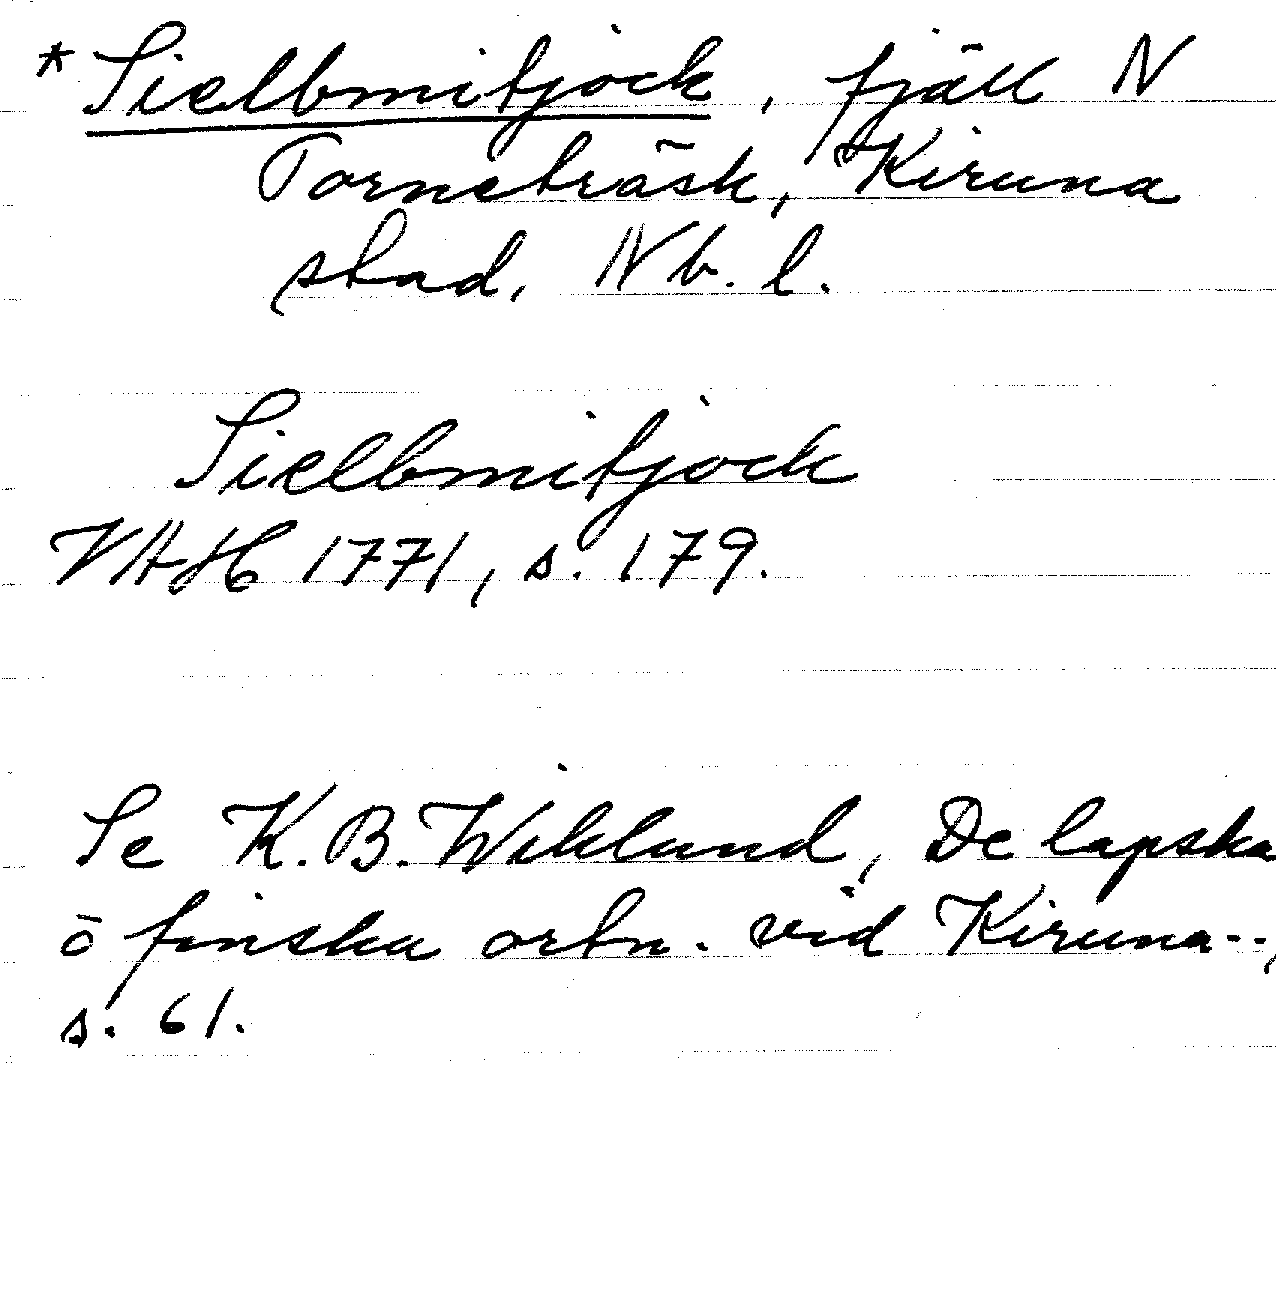 *Sielbmitjock, fjäll N
Torneträsk, Kiruna
stad, Nb. l.
Sielbmitjock
VAH 1771, s. 179.
Se K.B. Wiklund, De lapska
o finska ortn. vid Kiruna--,
s. 61.